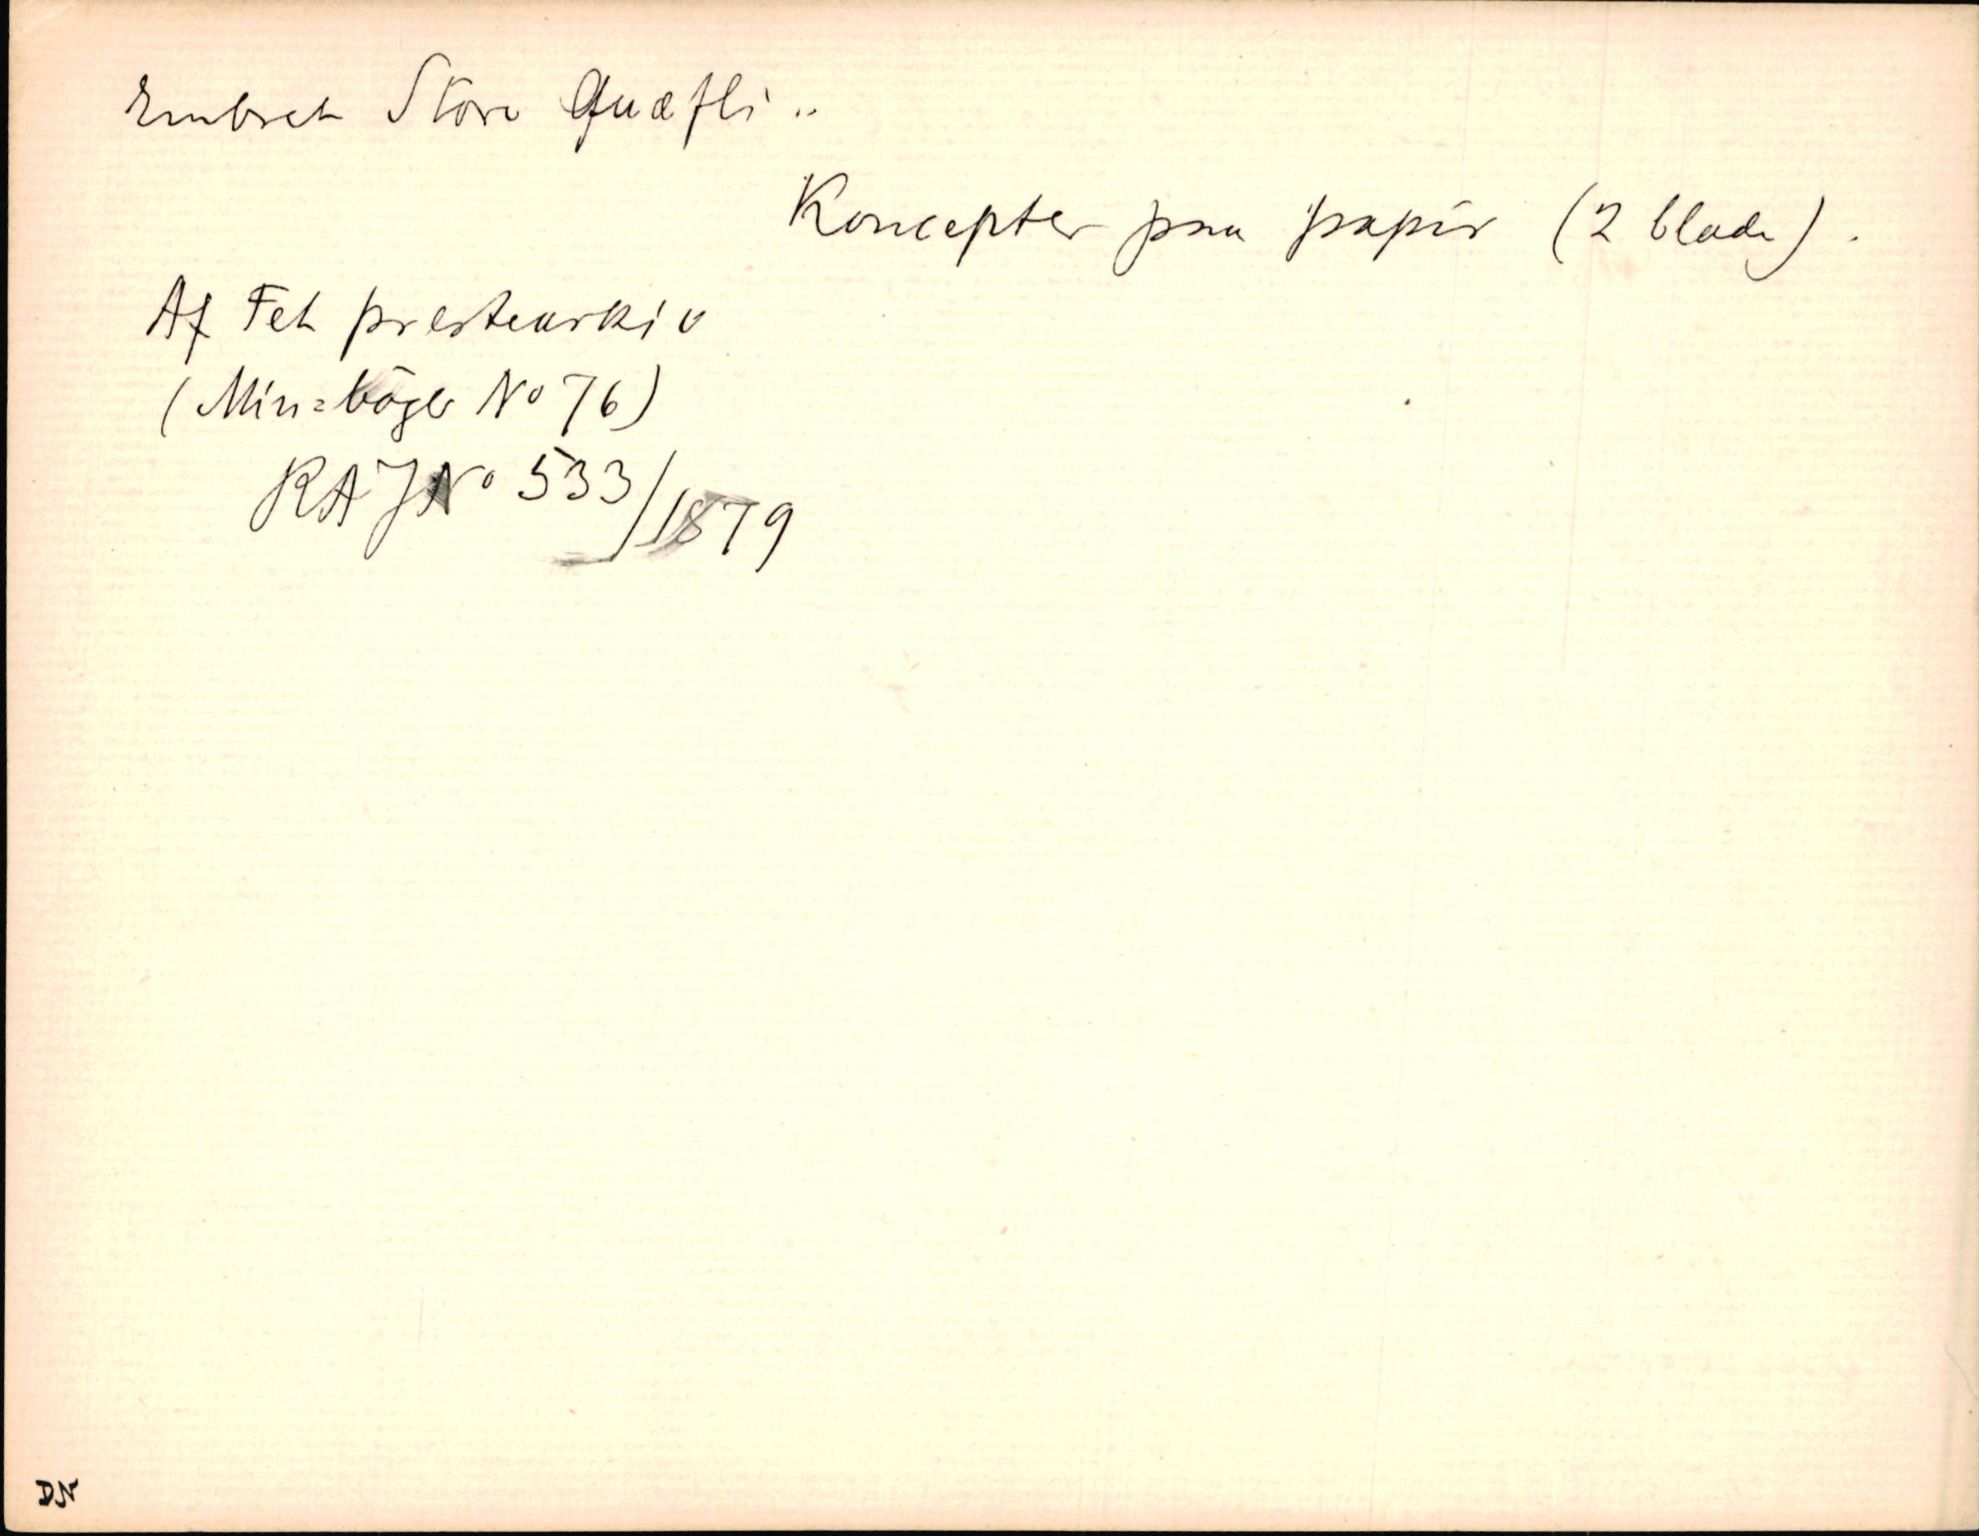 Embret Store Quæfli ..
Koncepter paa papir (2 blade).
Af Fet prestearkiv
(Min=bøger No 76)
RA J No 533/1879
DN